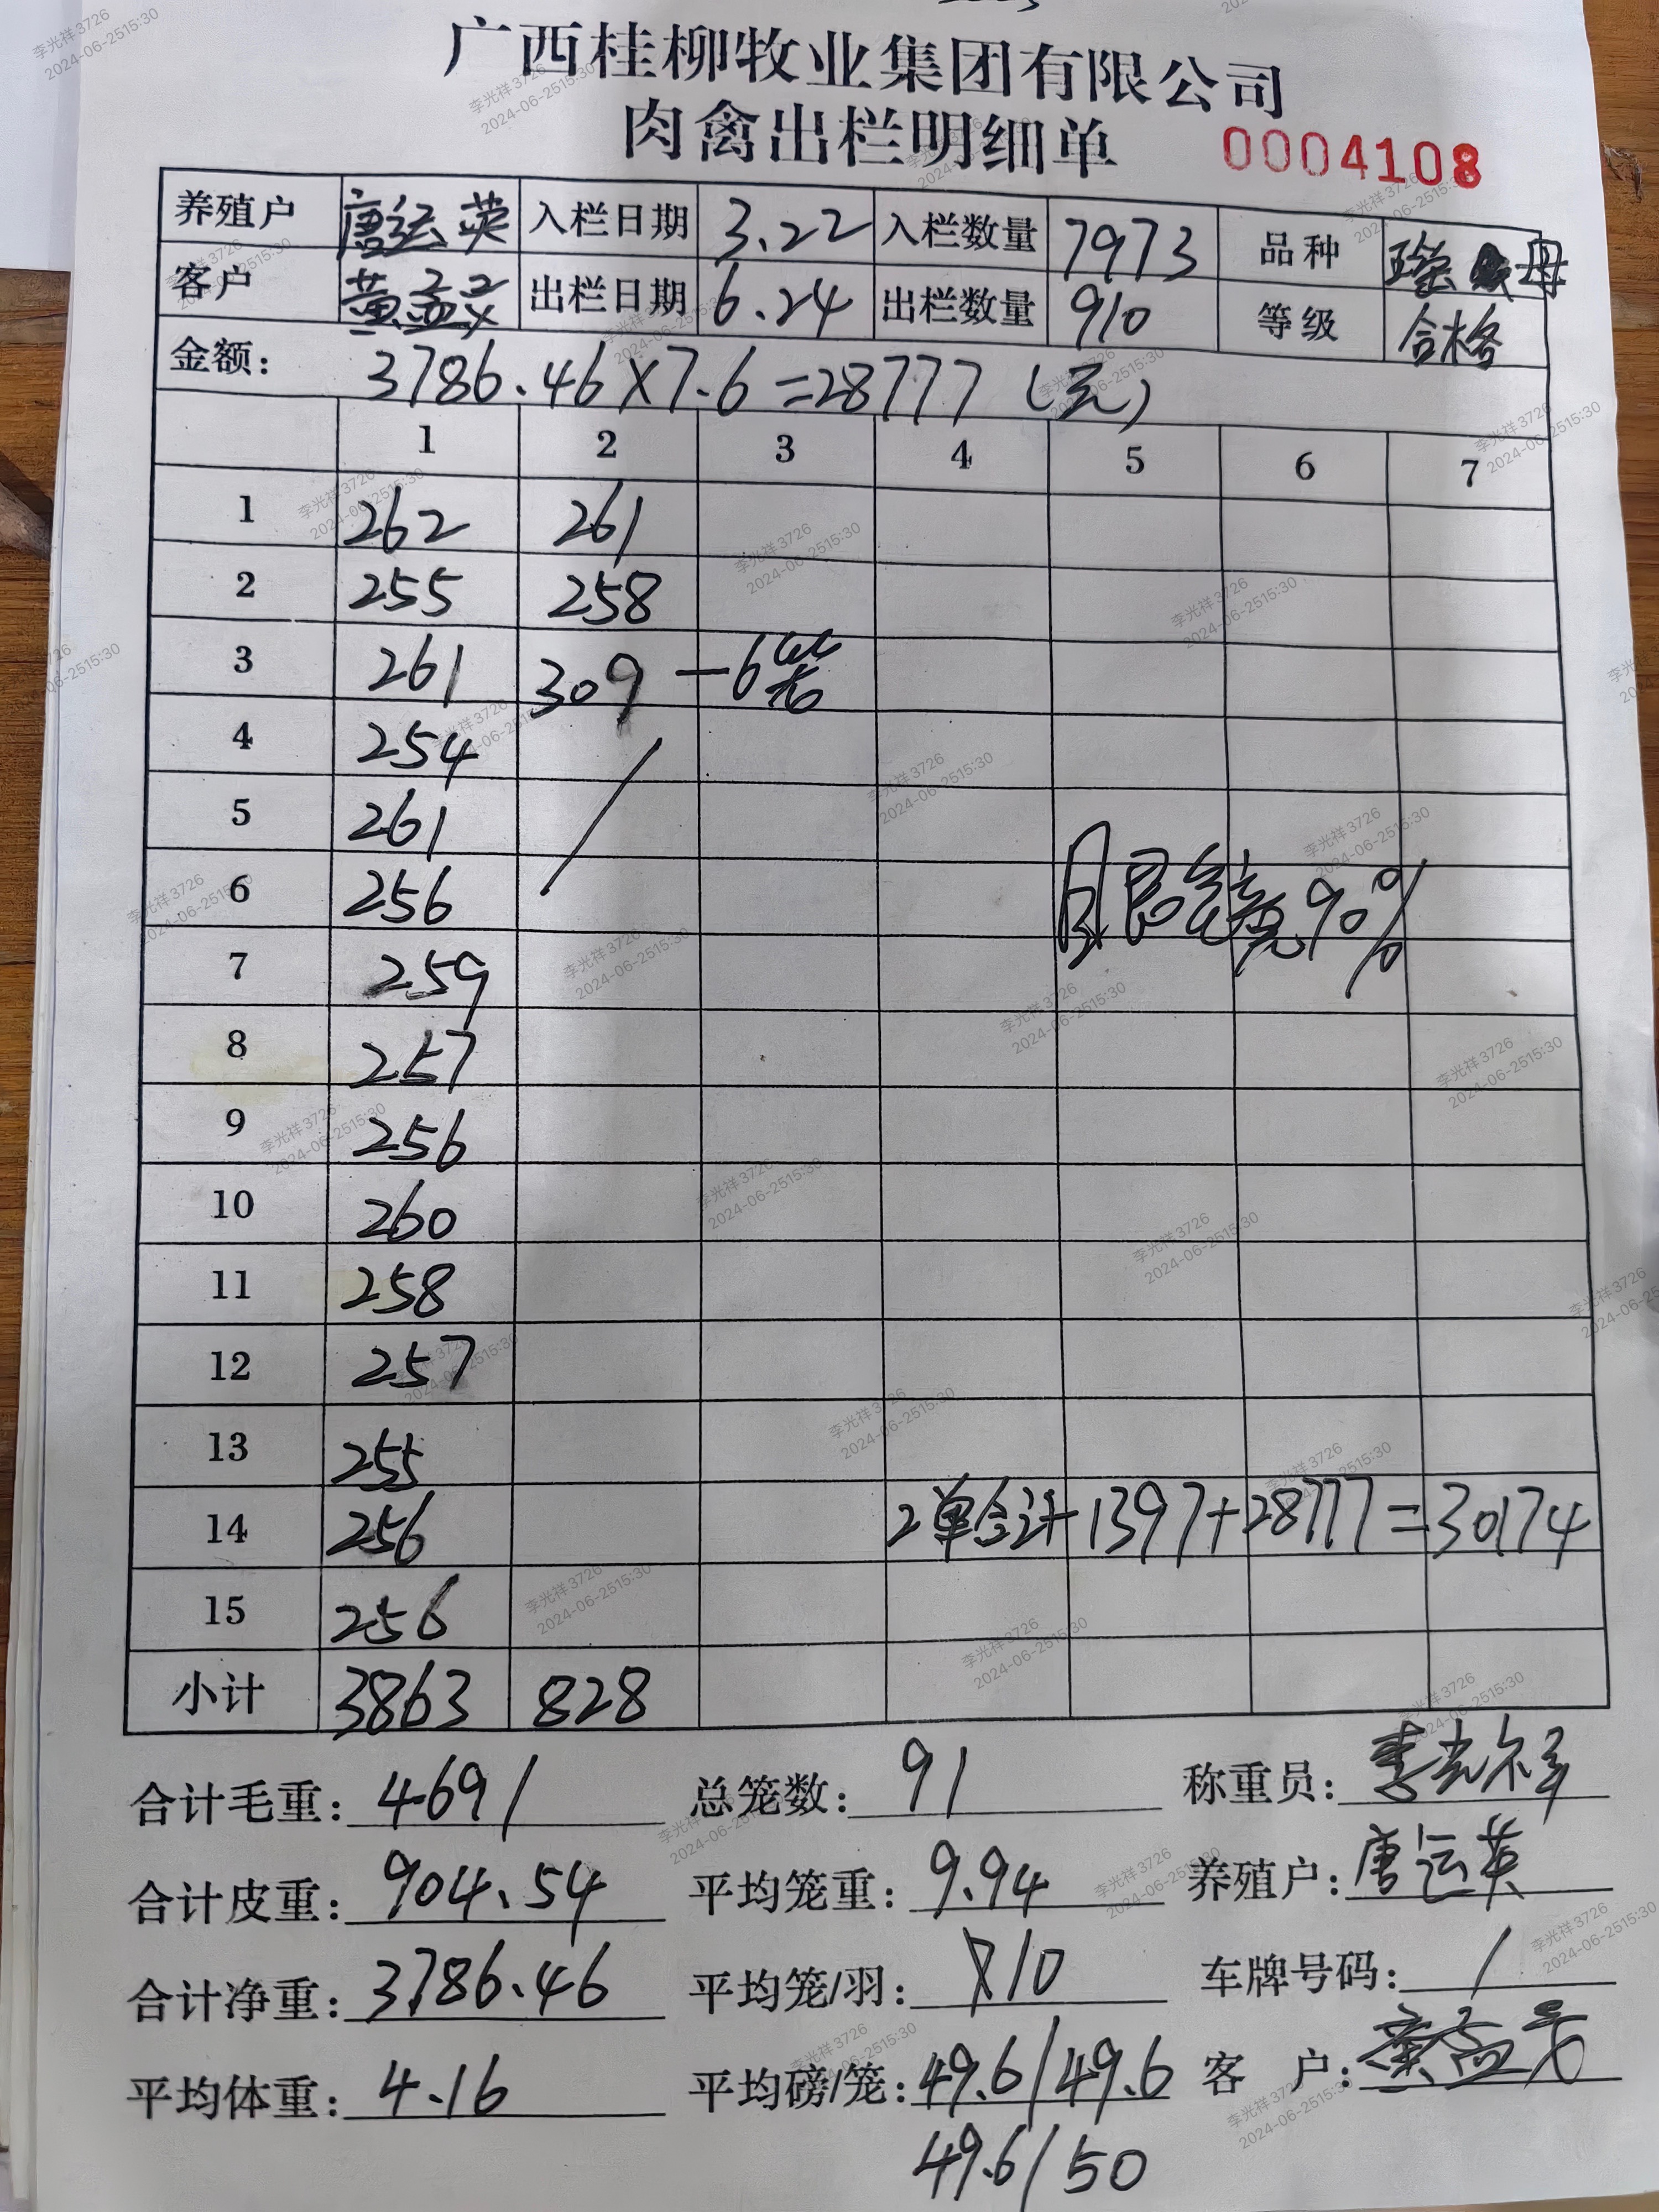 广西桂柳牧业集团有限公司
肉禽出栏明细单 0004108
养殖户 唐运英 入栏日期 3.22 入栏数量 7973 品种 母
客户 黄孟 出栏日期 6.24 出栏数量 910 等级 合格
金额: 3786.46×7.6=28777(元)
1 2 3 4 5 6 7
1 262 261
2 255 258
3 261 309 -6笼
4 254
5 261
6 256 90%
7 259
8 257
9 256
10 260
11 258
12 257
13 255
14 256 2单合计 1397+28777=30174
15 256
小计 3863 828
合计毛重: 4691 总笼数: 91 称重员: 李光祥
合计皮重: 904.54 平均笼重: 9.94 养殖户: 唐运英
合计净重: 3786.46 平均笼/羽: 10 车牌号码: /
平均体重: 4.16 平均磅/笼: 49.6/49.6 客户:
49.6/50
李光祥3726
2024-06-2515:30